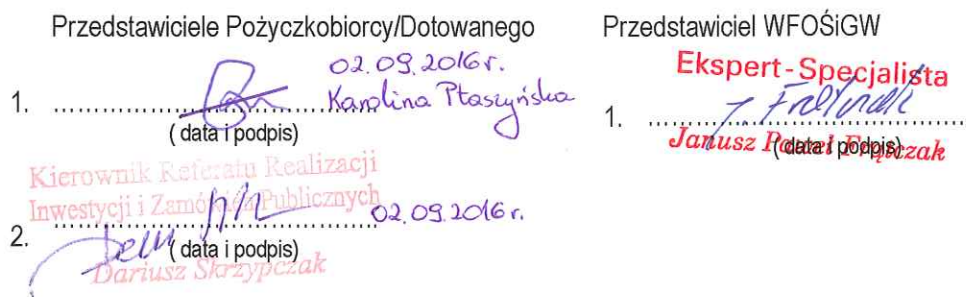 Przedstawiciele Pożyczkobiorcy/Dotowanego
02.09.2016r.
1. ........................................ Karolina Ptaszyńska
( data i podpis)
Kierownik Referatu Realizacji
Inwestycji i Zamówień Publicznych
2. ........................................ 02.09.2016r.
( data i podpis)
Dariusz Skrzypczak
Przedstawiciel WFOŚiGW
Ekspert-Specjalista
1. ........................................
( data i podpis)
Janusz Paweł Frątczak